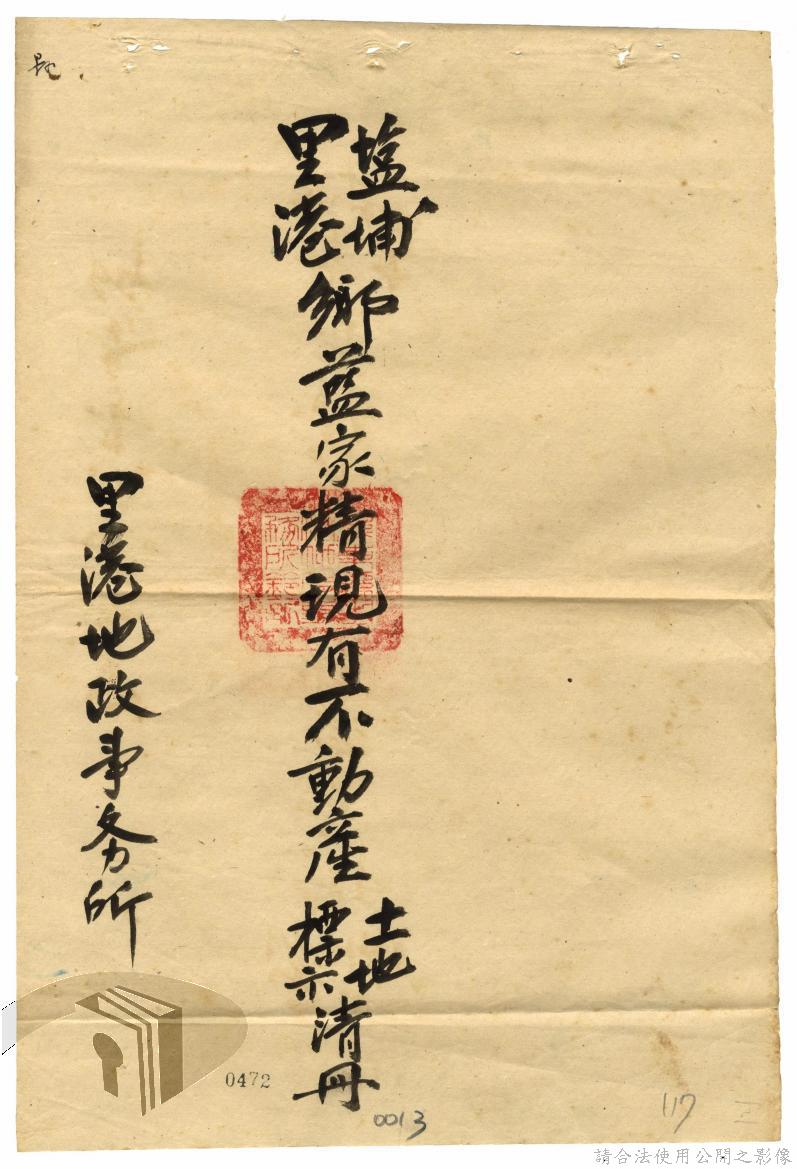 塩埔
里港
鄉藍家精現有不動產
土地
標示
清册
里港地政事务所
0472
0013
117
請合法使用公開之影像